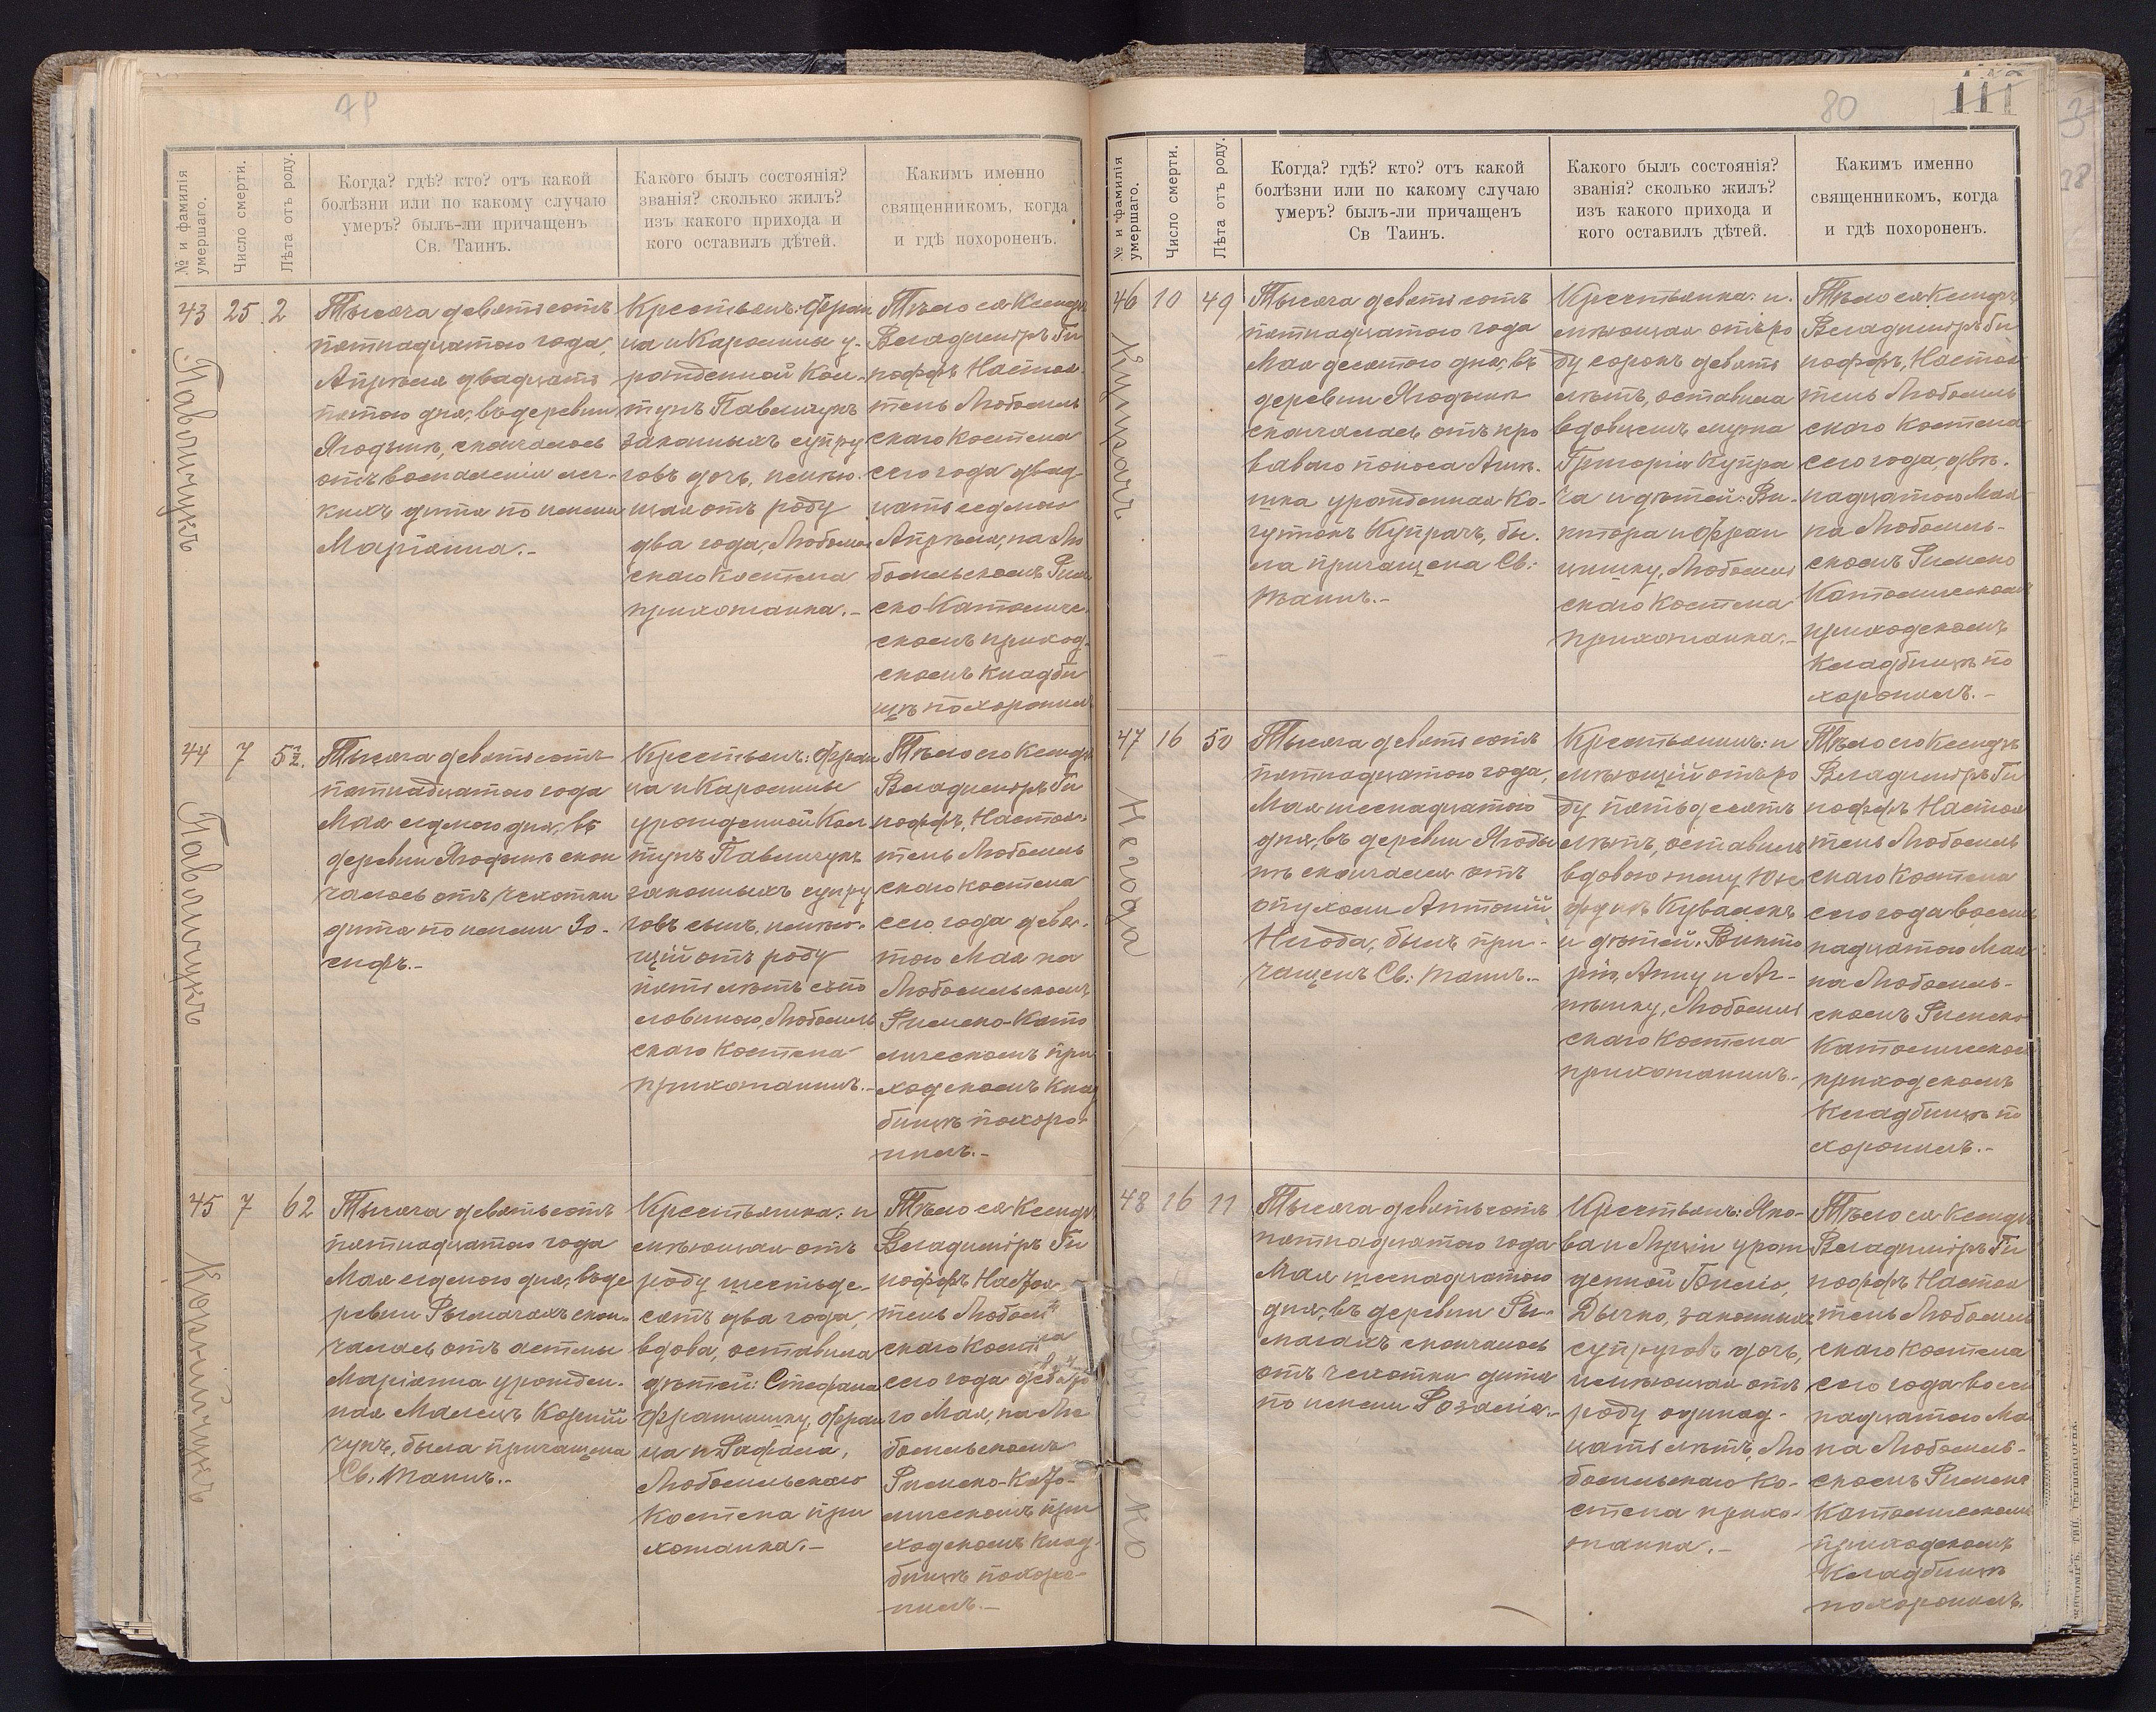 79
№ и фамилія умершаго.
Число смерти.
Лѣта отъ роду.
Когда? гдѣ? кто? отъ какой
болѣзни или по какому случаю
умеръ? былъ-ли причащенъ
Св. Таинъ.
Какого былъ состоянія?
званія? сколько жилъ?
изъ какого прихода и
кого оставилъ дѣтей.
Какимъ именно
священникомъ, когда
и гдѣ похороненъ.
43
Павличукъ
25
2
Тысяча девятьсотъ
пятнадцатого года,
Апрѣля двадцать
пятого дня, въ деревни
Ягодынѣ, скончалось
отъ воспаленія лег-
кихъ дитя по имени
Маріанна.-
Крестьянъ: Фран
ца и Каролины у-
рожденной Кол-
тунъ Павличукъ
законныхъ супру
говъ дочь, имѣю-
щая отъ роду
два года, Любомль
скаго костела
прихожанка.-
Тѣло ея Ксендзъ
Владиміръ Ги
поффъ, Настоя-
тель Любомль
скаго костела
сего года двад
цать седьмого
Апрѣля, на Лю
бомльскомъ Рим
ско Католиче-
скомъ приход-
скомъ кладби
щѣ похоронилъ
44
Павлічукъ
7
5½.
Тысяча девятьсотъ
пятнадцатого года
Мая седьмого дня, въ
деревни Ягодынѣ скон
чалось отъ чахотки
дитя по имени Іо-
сифъ.-
Крестьянъ: Фран
ца и Каролины
урожденной Кол
тунъ Павличукъ
законныхъ супру
говъ сынъ, имѣю-
щій отъ роду
пять лѣтъ съ по
ловиною, Любомль
скаго костела
прихожанинъ.-
Тѣло его Ксендзъ
Владиміръ Ги
поффъ, Настоя-
тель Любомль
скаго костела
сего года девя-
того Мая на
Любомльскомъ
Римско-Като
лическомъ при
ходскомъ клад
бищѣ похоро-
нилъ.-
45
Корнійчукъ
7
62
Тысяча девятьсотъ
пятнадцатого года
Мая седьмого дня, въ де
ревни Рымачахъ скон-
чалась отъ астмы
Маріанна урожден-
ная Малецъ Корній
чукъ, была причащена
Св. Таинъ.-
Крестьянка: и
мѣющая отъ
роду шестьде-
сятъ два года,
вдова, оставила
дѣтей: Стефана
Францишку, Фран
ца и Рафала,
Любомльскаго
костела при
хожанка.-
Тѣло ея Ксендзъ
Владиміръ Ги
поффъ Настоя-
тель Любомль
скаго костела
сего года девято
го Мая, на Лю
бомльскомъ
Римско-Като-
лическомъ при
ходскомъ клад-
бищѣ похоро-
нилъ.-
80
111
№ и фамилія умершаго.
Число смерти.
Лѣта отъ роду.
Когда? гдѣ? кто? отъ какой
болѣзни или по какому случаю
умеръ? былъ-ли причащенъ
Св Таинъ.
Какого былъ состоянія?
званія? сколько жилъ?
изъ какого прихода и
кого оставилъ дѣтей.
Какимъ именно
священникомъ, когда
и гдѣ похороненъ.
46
Купрачъ
10
49
Тысяча девятьсотъ
пятнадцатого года
Мая десятого дня, въ
деревни Ягодынѣ
скончалась отъ кро
ваваго поноса
урожденная Ко-
Купрачъ, бы-
ла причащена Св:
Таинъ.-
Крестьянка: и-
мѣющая отъ ро
ду сорокъ девять
лѣтъ, оставила
вдовцемъ мужа
Григорія Купра
ча и дѣтей: Ви-
ктора и Фран
цишку, Любомль
скаго костела
прихожанка.-
Тѣло ея Ксендзъ
Владиміръ Ги
поффъ, Настоя
тель Любомль
скаго костела
сего года, двѣ-
надцатого Мая
на Любомль-
скомъ Римско
Католическомъ
приходскомъ
кладбищѣ по
хоронилъ.-
47
Негода
16
50
Тысяча девятьсотъ
пятнадцатого года,
Мая шеснадцатого
дня, въ деревни Ягоды
нѣ скончался отъ
опухоли Антоній
Негода, былъ при-
чащенъ Св: Таинъ.-
Крестьянинъ: и
мѣющій отъ ро
ду пятьдесятъ
лѣтъ, оставилъ
вдовою жену Юзе
фу
и дѣтей: Викто
рію, Анну и Аг-
нѣшку, Любомль
скаго костела
прихожанинъ.-
Тѣло его Ксендзъ
Владиміръ Ги
поффъ Настоя
тель Любомль
скаго костела
сего года восем
надцатого Мая
на Любомль-
скомъ Римско
Католическомъ
приходскомъ
кладбищѣ по
хоронилъ.-
48
Дычко
16
11
Тысяча девятьсотъ
пятнадцатого года
Мая шеснадцатого
дня, въ деревни Ры-
мачахъ скончалось
отъ чахотки дитя
по имени Розалія.-
Крестьянъ: Яко-
ва и Люціи урож
денной
Дычко, законныхъ
супруговъ дочь,
имѣющая отъ
роду одинад-
цать лѣтъ, Лю
бомльскаго ко-
стела прихо-
жанка.-
Тѣло ея Ксендзъ
Владиміръ Ги
поффъ Настоя
тель Любомль
скаго костела
сего года восем
надцатого Мая
на Любомль-
скомъ Римско
Католическомъ
приходскомъ
кладбищѣ
похоронилъ.